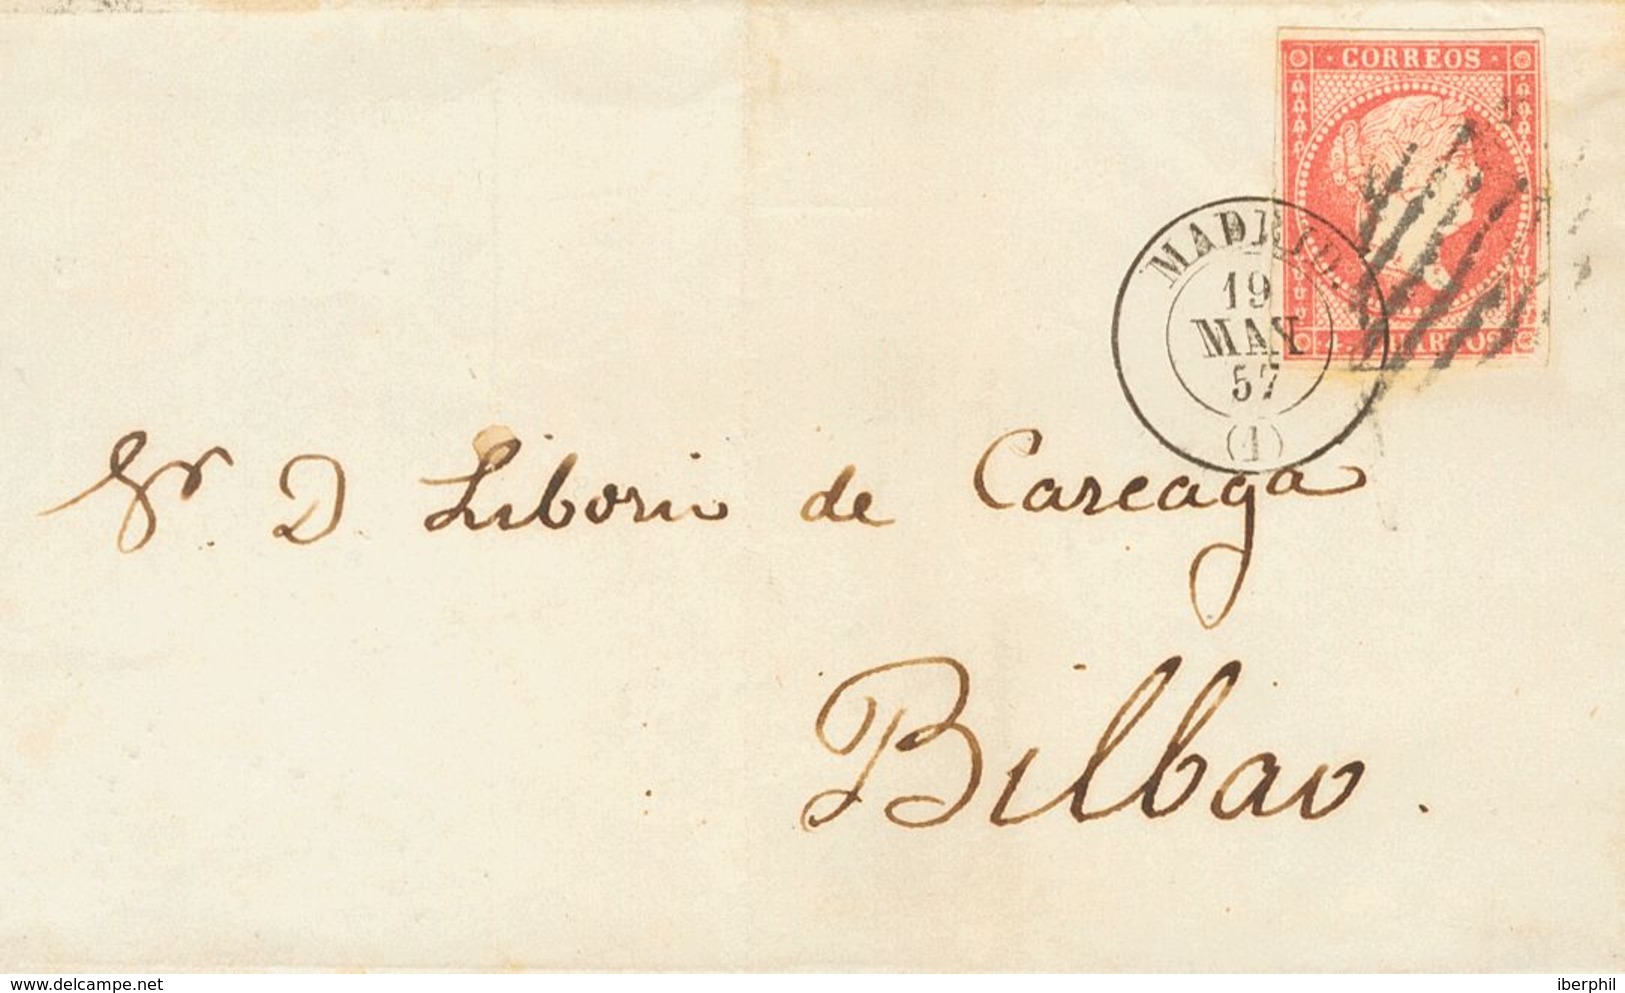 CORREOS
MADRID.
19
MAY
57
(1)
Sr. D. Liborio de Careaga
Bilbao.
www.delcampe.net
iberphil